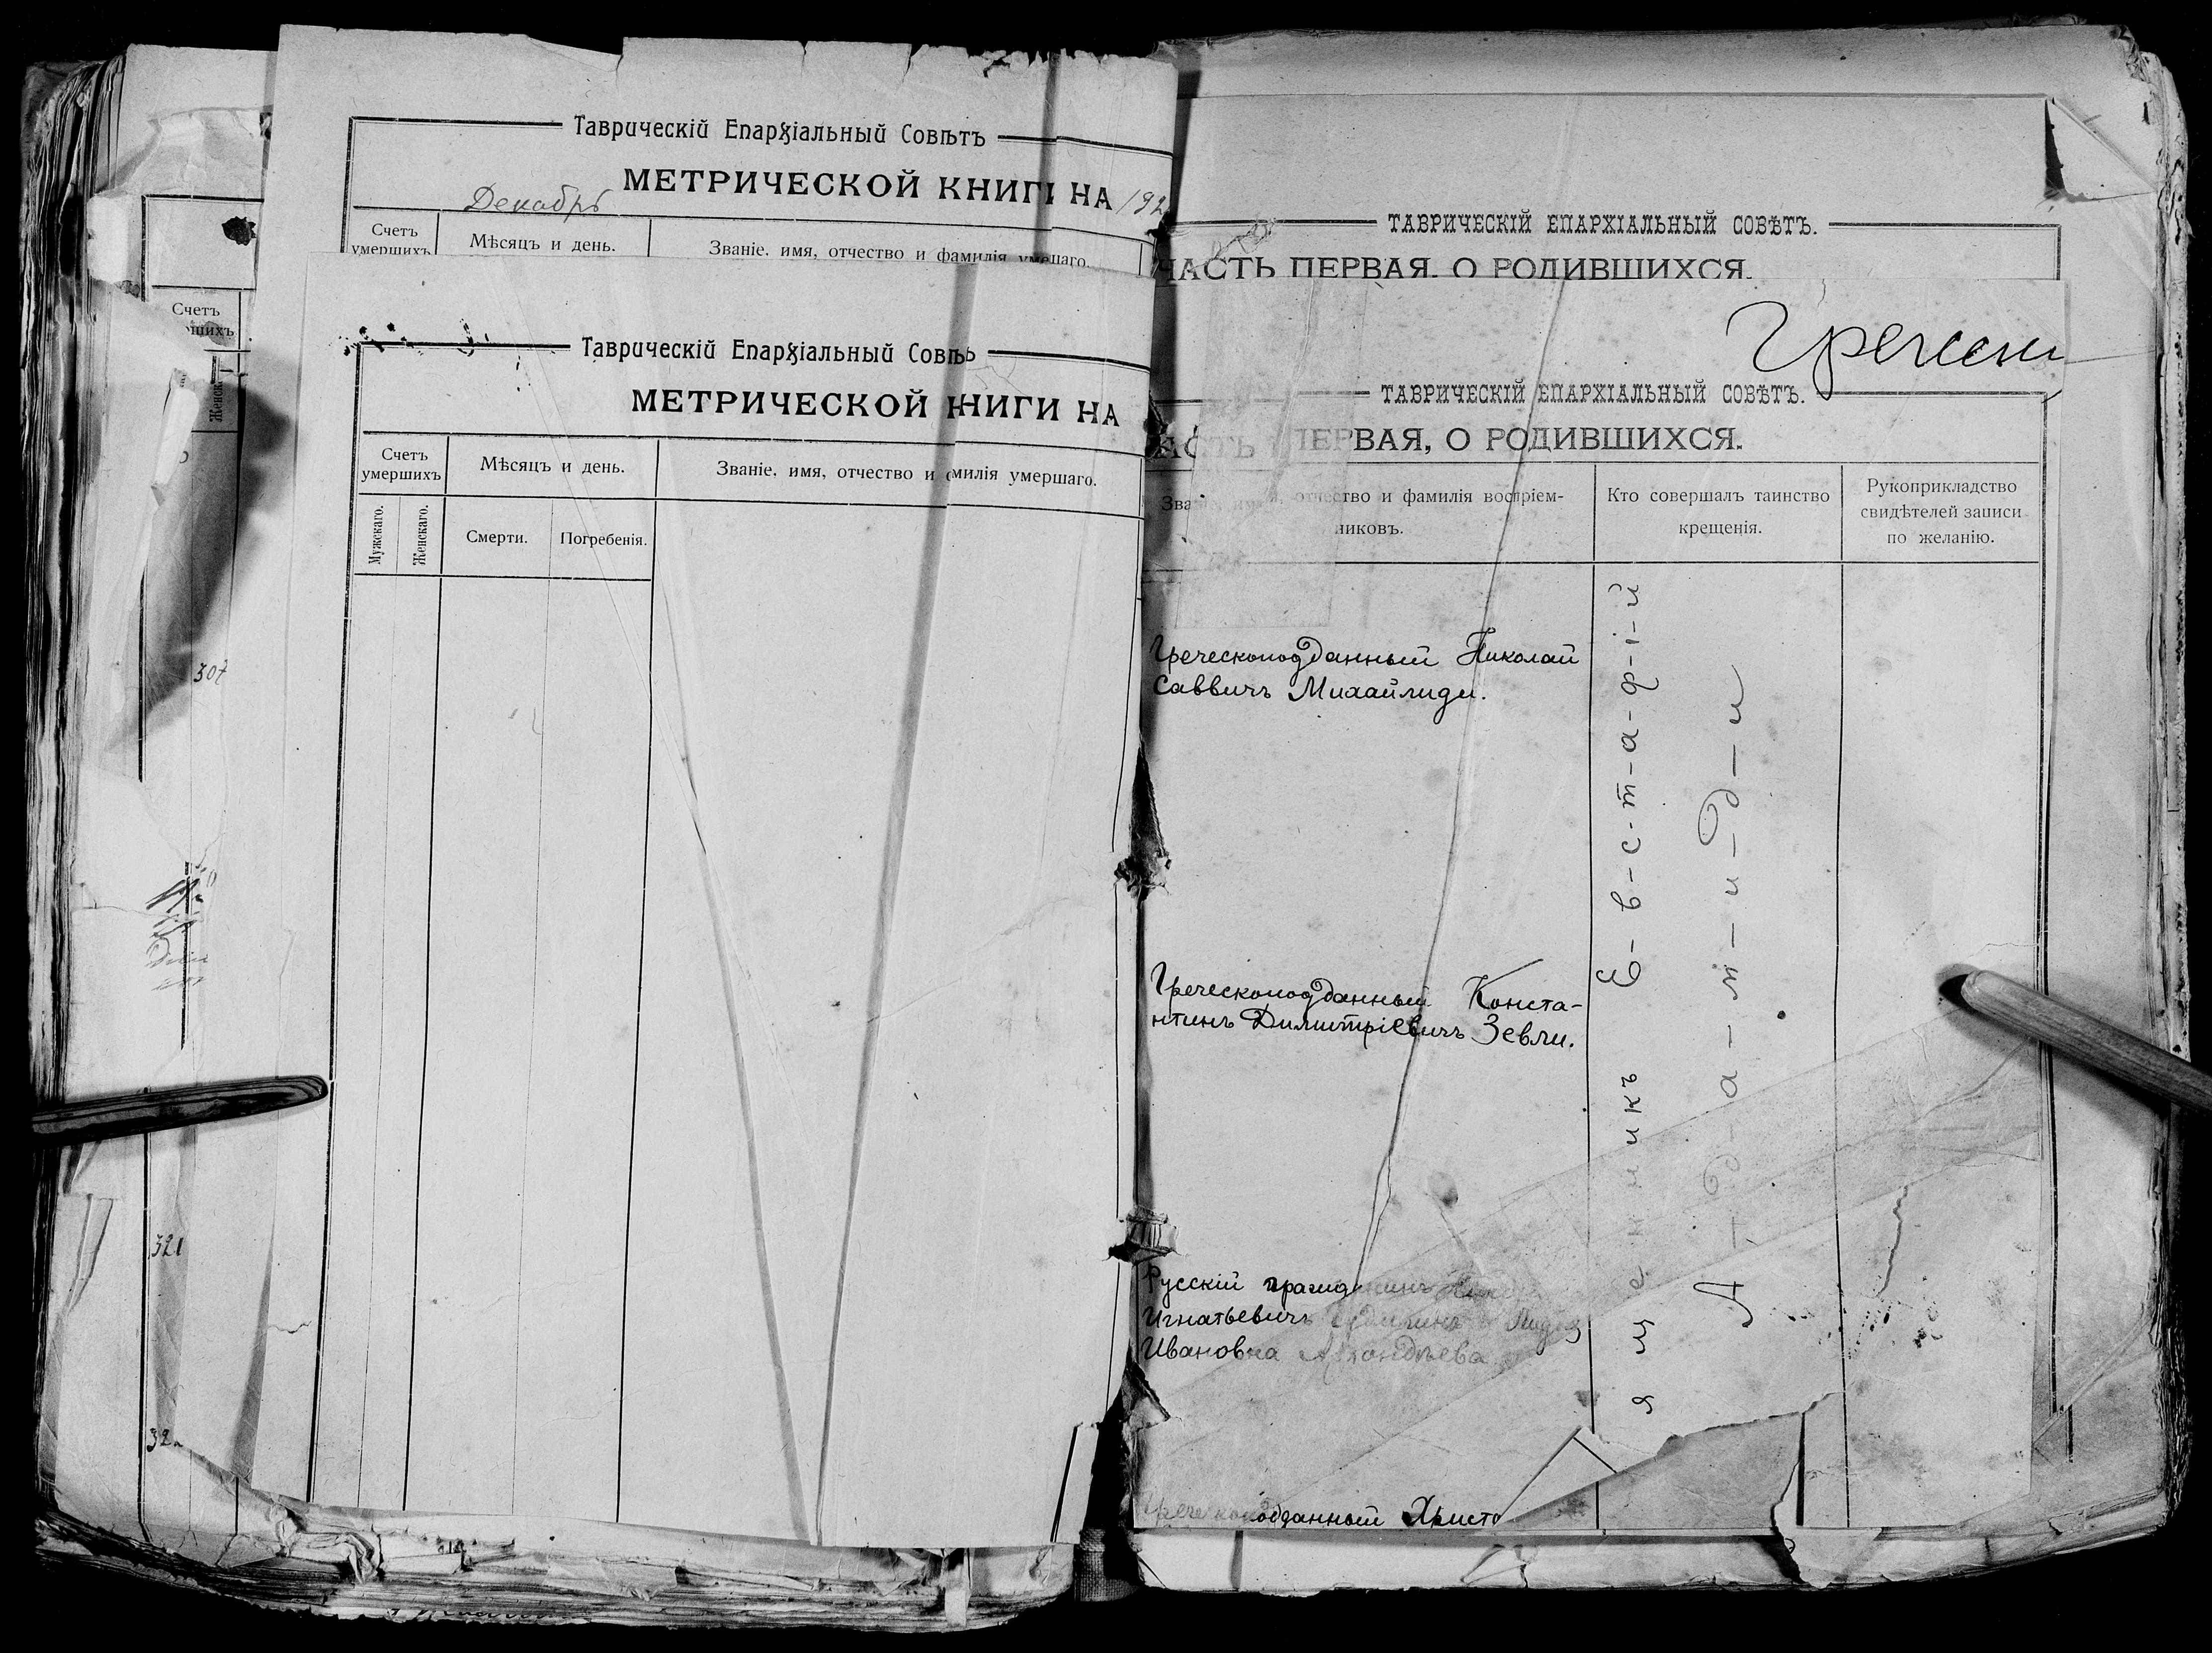 Таврическій Епархіальный Совѣтъ
МЕТРИЧЕСКОЙ КНИГИ НА 192
Декабрь
Счетъ умершихъ
Мѣсяцъ и день.
Званіе, имя, отчество и фамилія умершаго.
Счетъ
Женск
307
321
32
Таврическій Епархіальный Совѣтъ
МЕТРИЧЕСКОЙ КНИГИ НА
Счетъ
умершихъ
Мѣсяцъ и день.
Званіе, имя, отчество и фамилія умершаго.
Мужскаго.
Женскаго.
Смерти.
Погребенія.
ТАВРИЧЕСКІЙ ЕПАРХІАЛЬНЫЙ СОВѢТЪ.
ЧАСТЬ ПЕРВАЯ, О РОДИВШИХСЯ.
Гречески
ТАВРИЧЕСКІЙ ЕПАРХІАЛЬНЫЙ СОВѢТЪ.
АСТЬ ПЕРВАЯ, О РОДИВШИХСЯ.
Званіе, имя, отчество и фамилія воспріем-
никовъ.
Кто совершалъ таинство
крещенія.
Рукоприкладство
свидѣтелей записи
по желанію.
Греческоподданный Николай
Саввичъ Михайлиди.
Греческоподданный Конста-
нтинъ Димитріевичъ Зевли.
Русскій гражданинъ
Игнатьевичъ Лидія
Ивановна
Греческоподданный Христо
ященникъ Е-в-с-т-а-ф-і-й
А-д-а-м-и-д-и